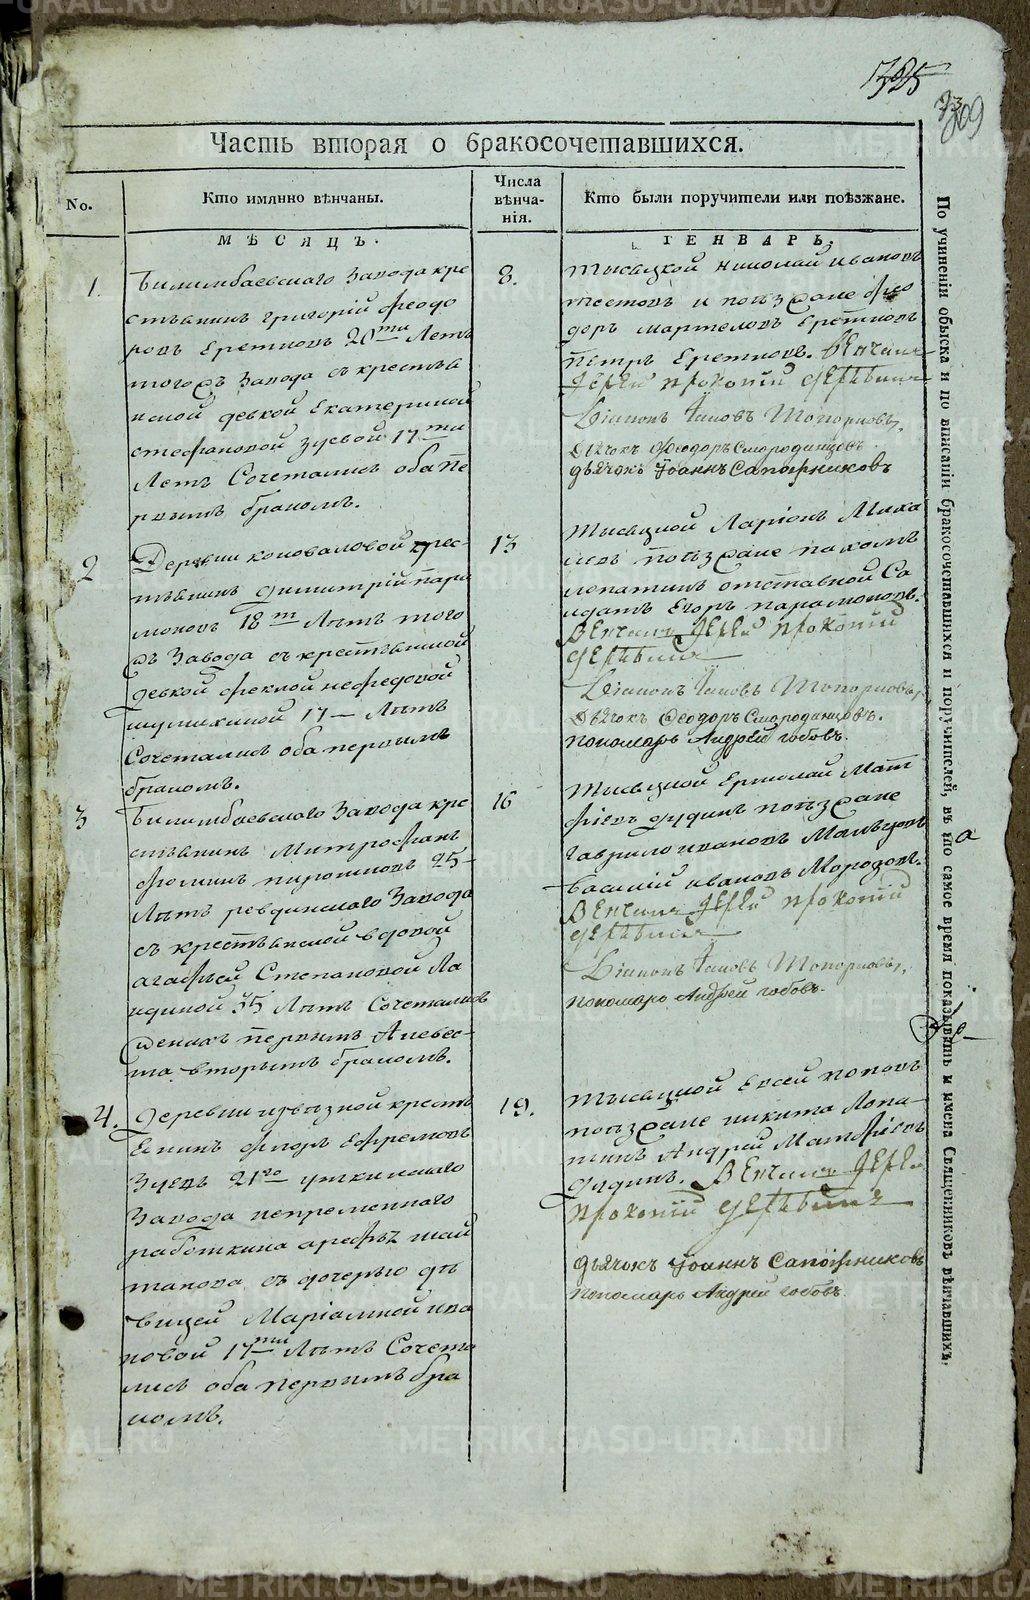 1325
309
Часть вторая о бракосочетавшихся.
No.
Кто имянно вѣнчаны.
Числа
вѣнча-
нія.
Кто были поручители или поѣзжане.
МѢСЯЦЪ.
ГЕНВАРЬ,
1.
Билимбаевскаго Завода кре
стьянинъ григорій феодо
ровъ Еретновъ 20ти Летъ
тогожъ Завода съ крестья
нской девкой Екатериной
стефановой Зуевой 17ти
Летъ Сочетались оба пе
рвымъ бракомъ.
8.
тысяцкой николай ивановъ
и поѣзжане фео
доръ мартеловъ Еретновъ
петръ Еретновъ. Венчалъ
Іерей прокопій
Діаконъ Іаковъ Топорковъ,
Дьячокъ Ѳеодоръ Смородинцевъ
дьячокъ Іоаннъ Сапожниковъ
2
Деревни коноваловой крес-
тьянинъ димитрій пара
моновъ 18ти Лѣтъ того
жъ Завода съ крестьянской
девкой феклой нефедовой
шулихиной 17 Лѣтъ
Сочетались оба первымъ
бракомъ.
13
тысяцкой Ларіонъ Мака
ровъ поѣзжане пахомъ
лопатинъ отставной Са
лдатъ Егоръ парамоновъ.
Венчалъ Іерей прокопій
Діаконъ Іаковъ Топорковъ,
Дьячокъ Ѳеодоръ Смородинцовъ.
пономарь Андрей гобовъ.
3
Билимбаевскаго Завода кре
стьянинъ Митрофанъ
фоминъ пирожковъ 25
Лѣтъ ревдинскаго Завода
съ крестьянской вдовой
агафьей Степановой Ла
диной 35 Лѣтъ Сочетались
женихъ первымъ А невес-
та вторымъ бракомъ.
16
тысяцкой Ермолай Мат
фіевъ дудинъ поѣзжане
гаврило ивановъ Мальцовъ
василій ивановъ Морозовъ.
Венчалъ Іерей прокопій
Діаконъ Іаковъ Топорковъ,
пономарь Андрей гобовъ.
4.
деревни извѣзной кресть
Енинъ Ефремовъ
Зуевъ 21го уткинскаго
Завода непременного
работника арефья шай
танова съ дочерью дѣ
вицей Маріамной ива
новой 17ти Лѣтъ Сочета
лись оба первымъ бра
комъ.
19.
тысяцкой Евсей поповъ
поѣзжане никита Лопа-
тинъ Андрей Матфіевъ
дудинъ. Венчалъ Іерей
прокопій
дьячокъ Іоаннъ Сапожниковъ
пономарь Андрей гобовъ.
По учиненіи обыска и по вписаніи бракосочетавшихся и поручителей, въ то самое время показывать и имена Священниковъ вѣнчавшихъ.
METRIKI.GASO-URAL.RU